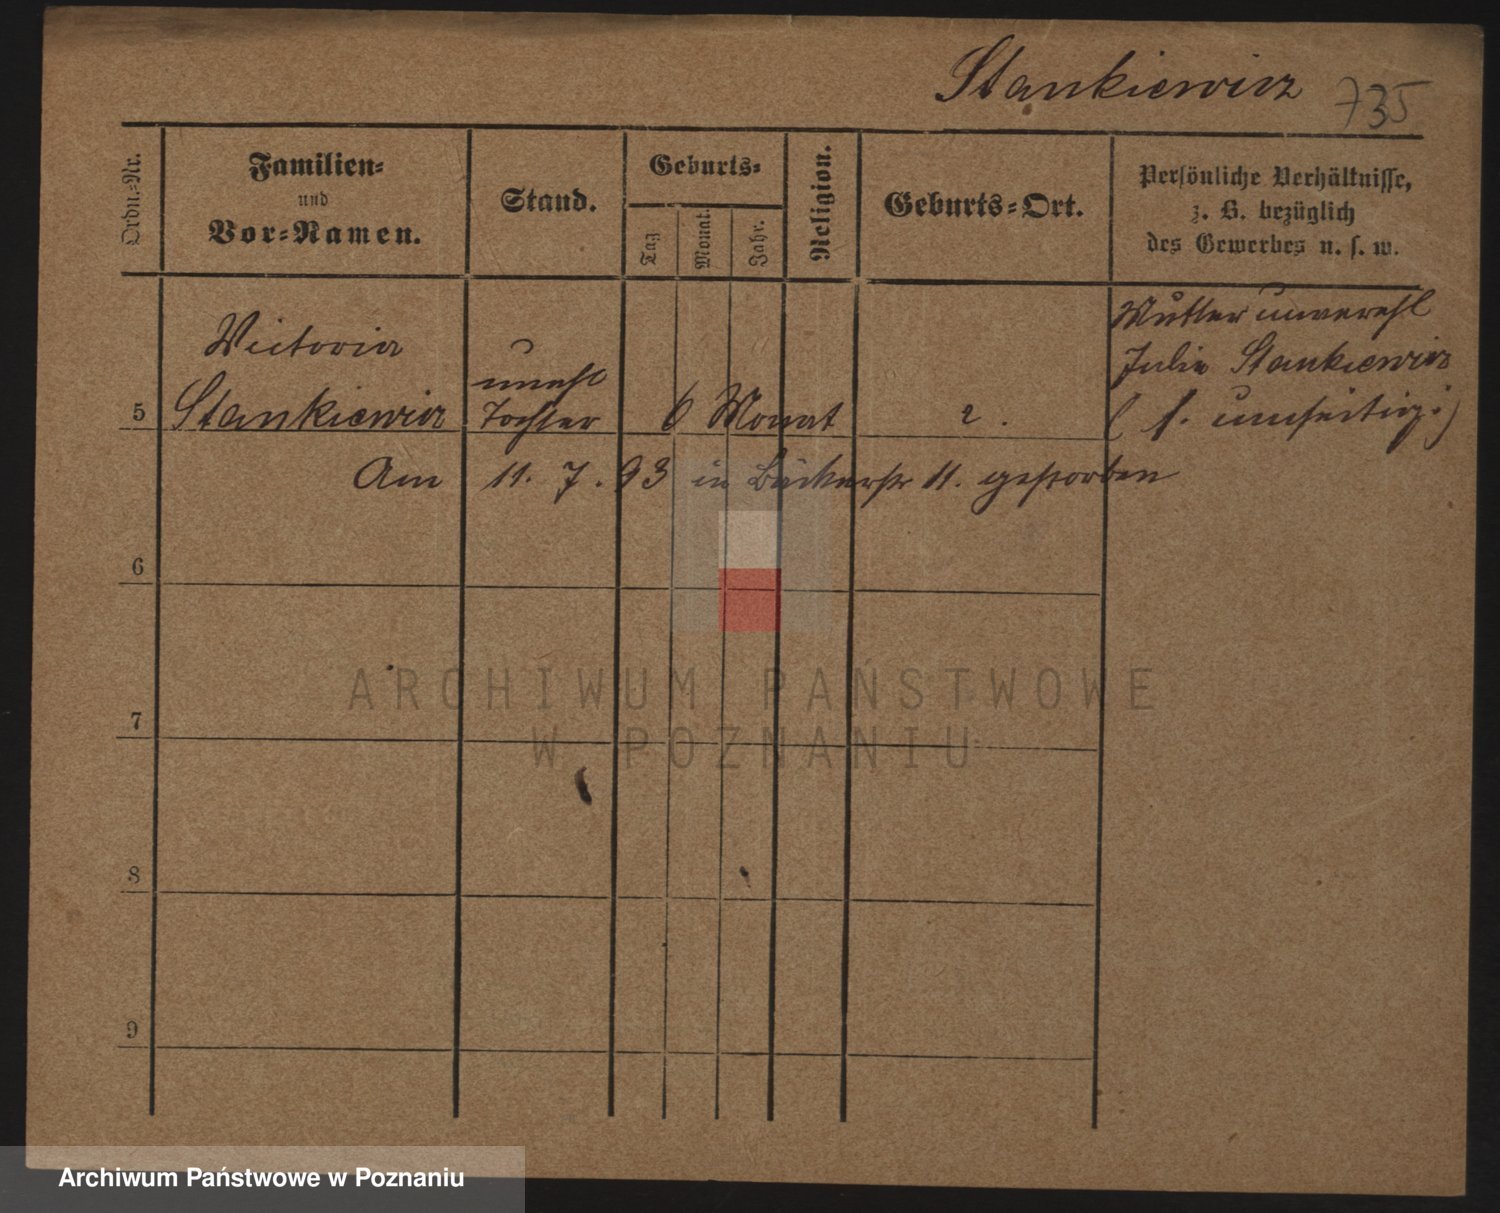 Stankiewicz 735
Ordn.-Nr.
Familien-
und
Vor-Namen.
Stand.
Geburts-
Tag
Monat.
Jahr.
Religion.
Geburts-Ort.
Persönliche Verhältnisse,
z. B. bezüglich
des Gewerbes u. s. w.
Victoria
Stankiewicz
unehl
Tochter
6 Monat
?.
Mutter unverehl
Julie Stankiewicz
( s. umseitig.)
5
Am 11. 7. 93 in Bäckerstr 11. gestorben
6
7
8
9
ARCHIWUM PAŃSTWOWE
W POZNANIU
Archiwum Państwowe w Poznaniu